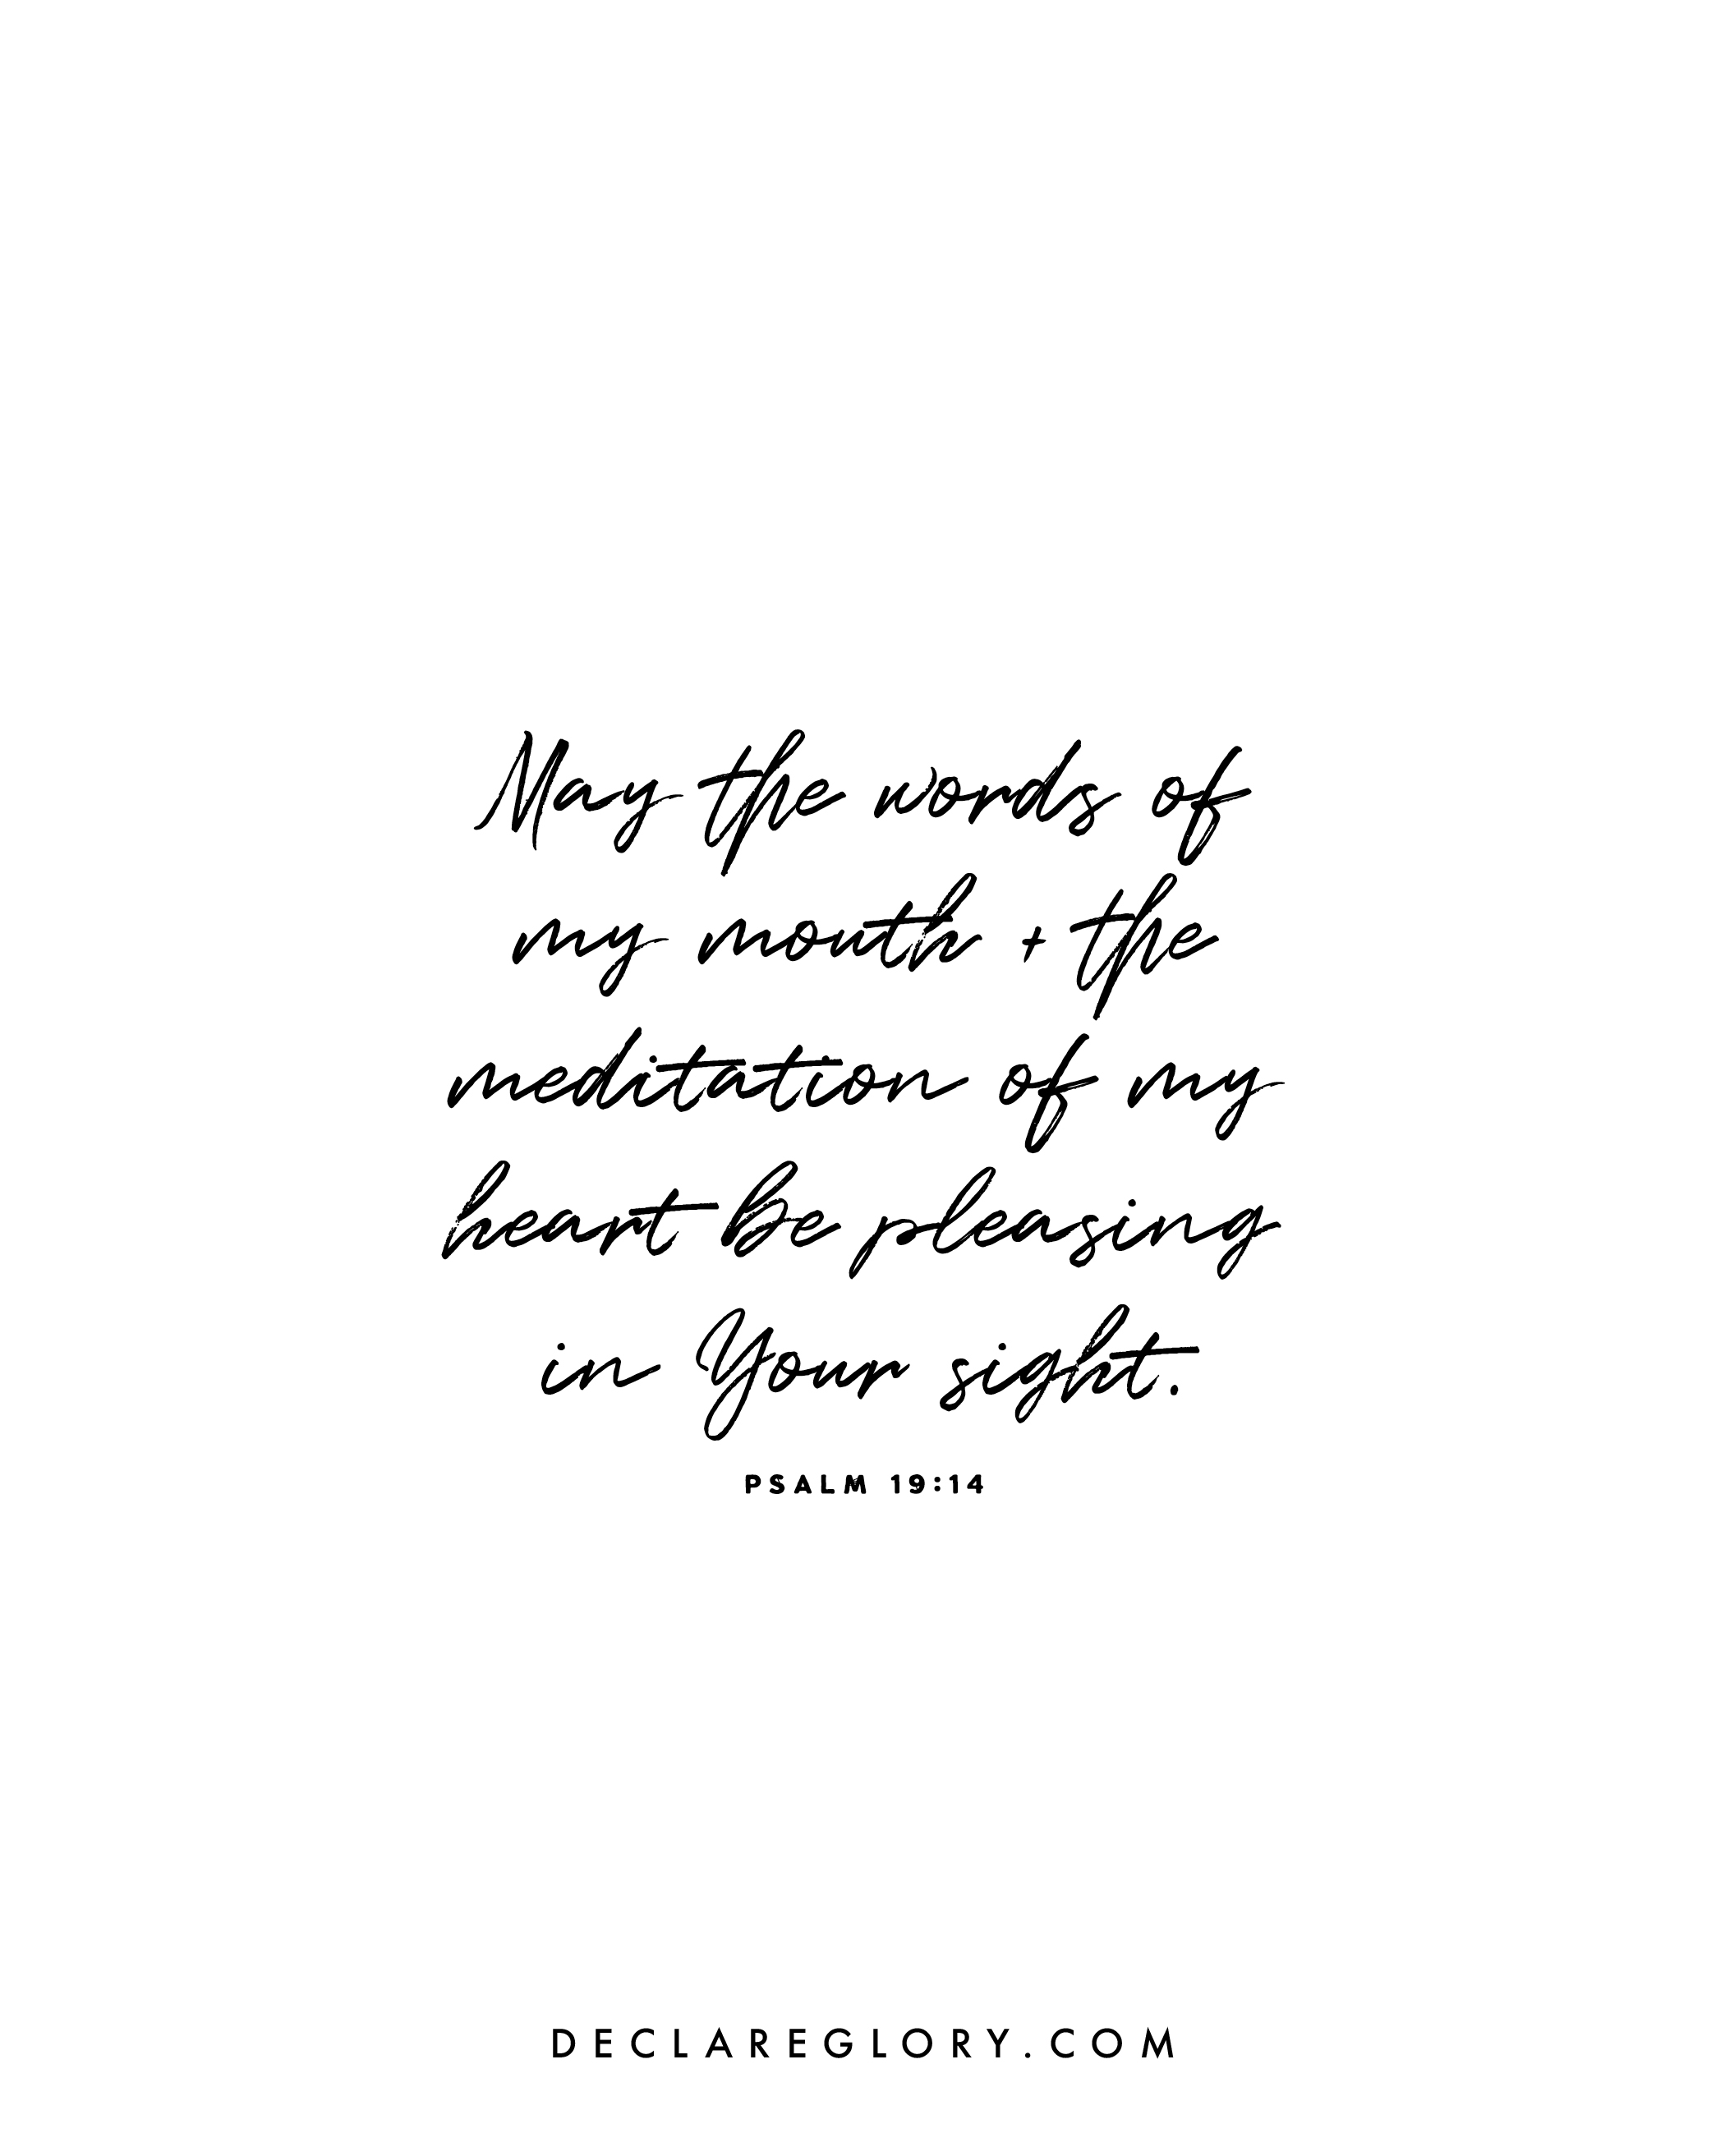 May the words of
my mouth + the
meditation of my
heart be pleasing
in Your sight.
PSALM 19:14
DECLAREGLORY.COM